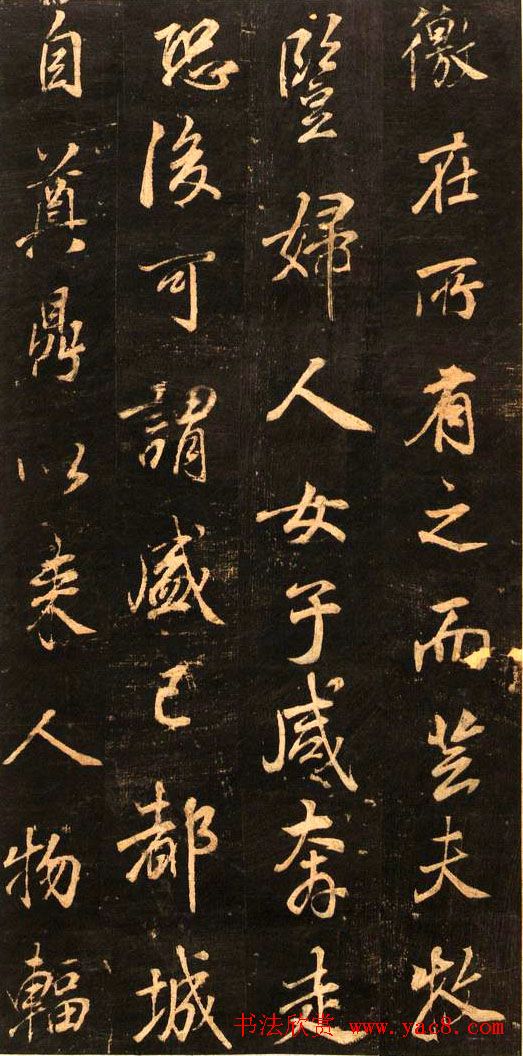 徼在所有之而芸夫牧
豎婦人女子咸奔走
恐後可謂盛已都城
自奠鼎以来人物輻
书法欣赏 www.yac8.com